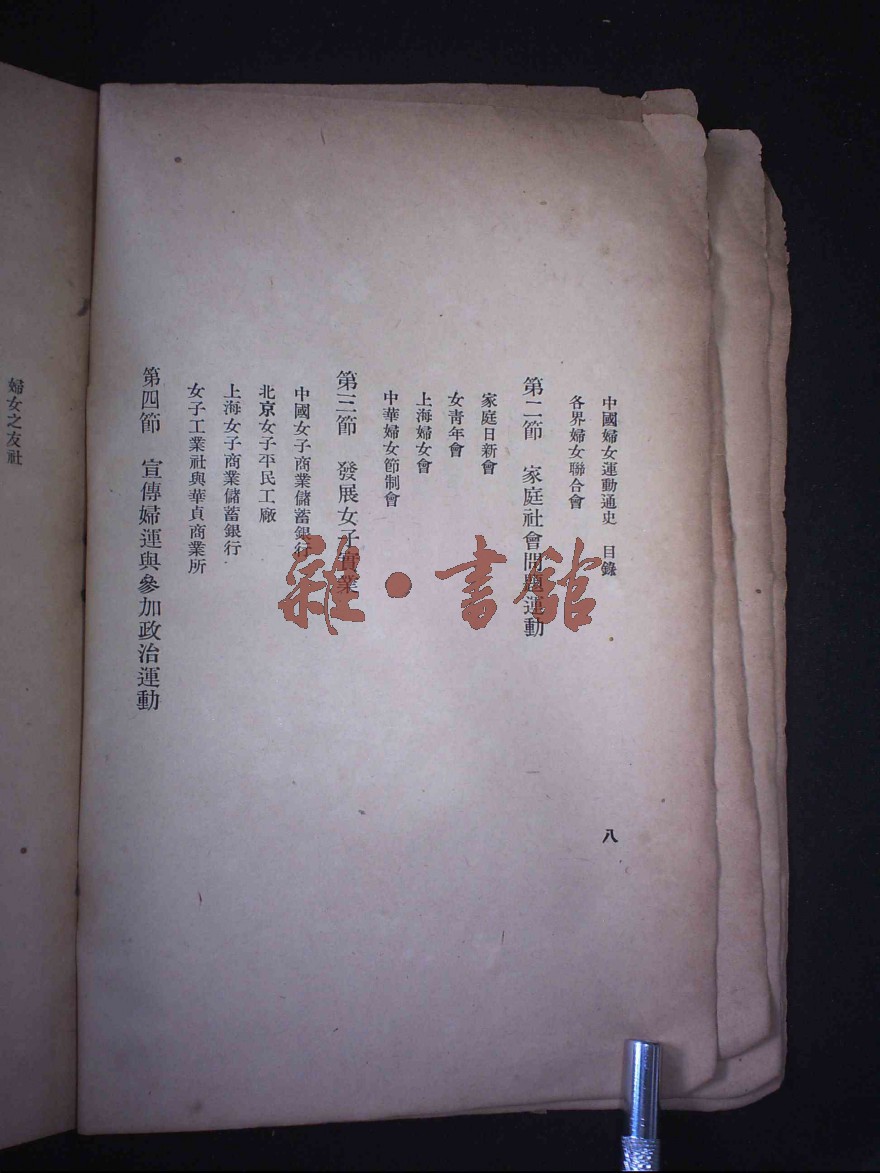 中國婦女運動通史 目錄 八
各界婦女聯合會
第二節 家庭社會問題運動
家庭日新會
女青年會
上海婦女會
中華婦女節制會
第三節 發展女子實業
中國女子商業儲蓄銀行
北京女子平民工廠
上海女子商業儲蓄銀行
女子工業社與華貞商業所
第四節 宣傳婦運與參加政治運動
婦女之友社
雜·書館